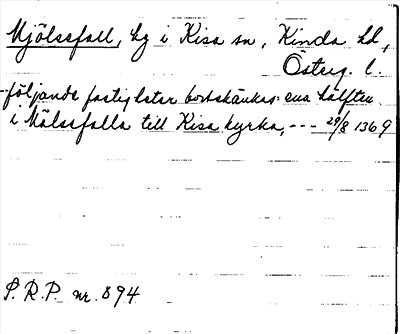 Mjölsefall, by i Kisa sn, Kinda hd,
Österg. l.
följande fastigheter bortskänkas: ena hälften
i Mälsefalla till Kisa kyrka, --- 29/8 1369
P. R. P. nr. 894